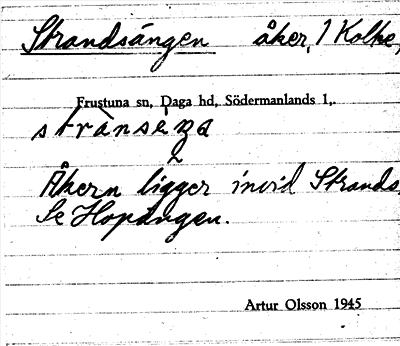 Strandsängen åker, 1 Kolke,
Frustuna sn, Daga hd, Södermanlands l,.
strànsèŋa
2
Åkern ligger invid Strands
Se Hopängen.
Artur Olsson 1945